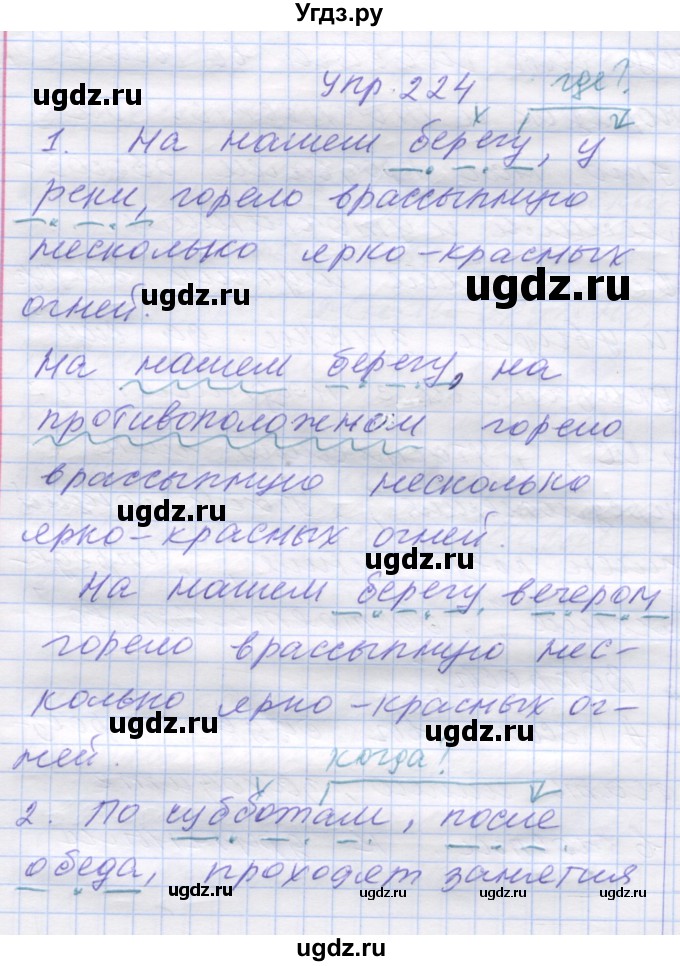 Угдз.ру
ugdz.ru
упр. 224 где?
1. На нашем берегу, у
реки, горело врассыпную
несколько ярко-красных
ugdz.ru
ugdz.ru
огней.
На нашем берегу, на
противоположном горело
врассыпную несколько
ugdz.ru
ярко-красных огней.
ugdz.ru
На нашем берегу вечером
горело врассыпную нес-
колько ярко-красных ог-
ugdz.ru
ugdz.ru
ней. когда?
2. По субботам, после
обеда, проходят занятия
ugdz.ru
ugdz.ru
ugdz.ru
ugdz.ru
ugdz.ru